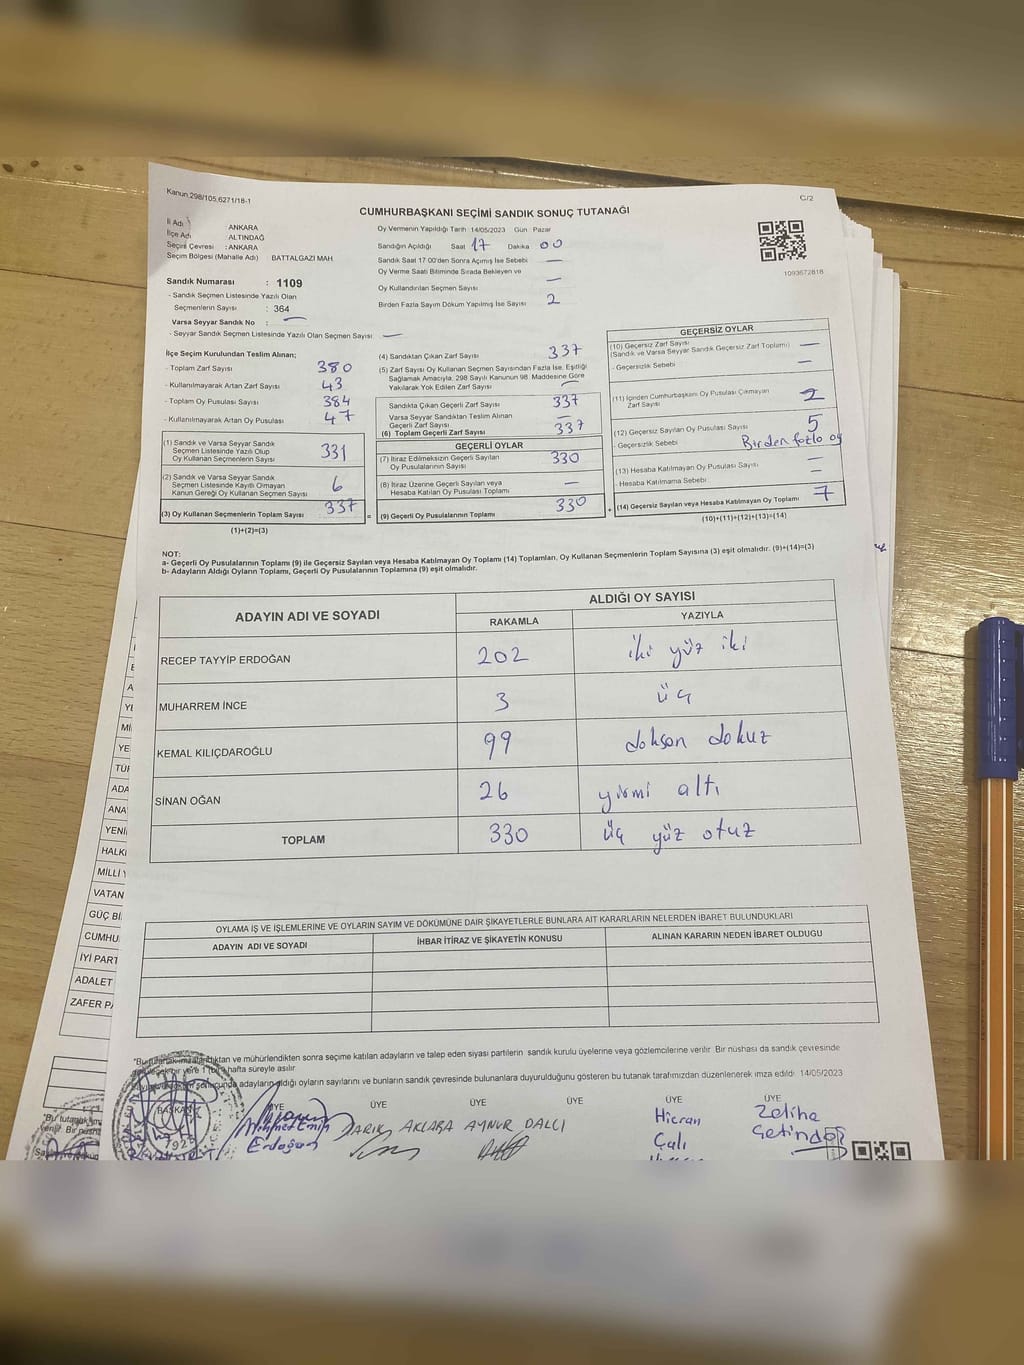 Kanun 298/105,6271/18-1
C/2
CUMHURBAŞKANI SEÇİMİ SANDIK SONUÇ TUTANAĞI
İl Adı : ANKARA
İlçe Adı : ALTINDAĞ
Seçim Çevresi : ANKARA
Seçim Bölgesi (Mahalle Adı) : BATTALGAZI MAH
Sandık Numarası : 1109
- Sandık Seçmen Listesinde Yazılı Olan
Seçmenlerin Sayısı : 364
Varsa Seyyar Sandık No : —
- Seyyar Sandık Seçmen Listesinde Yazılı Olan Seçmen Sayısı : —
Oy Vermenin Yapıldığı Tarih : 14/05/2023 Gün : Pazar
Sandığın Açıldığı Saat 17 Dakika 00
Sandık Saat 17:00'den Sonra Açımış İse Sebebi —
Oy Verme Saati Bitiminde Sırada Bekleyen ve
Oy Kullandırılan Seçmen Sayısı —
Birden Fazla Sayım Döküm Yapılmış İse Sayısı 2
1093672818
İlçe Seçim Kurulundan Teslim Alınan;
- Toplam Zarf Sayısı : 380
- Kullanılmayarak Artan Zarf Sayısı : 43
- Toplam Oy Pusulası Sayısı : 384
- Kullanılmayarak Artan Oy Pusulası : 47
(1) Sandık ve Varsa Seyyar Sandık
Seçmen Listesinde Yazılı Olup
Oy Kullanan Seçmenlerin Sayısı 331
(2) Sandık ve Varsa Seyyar Sandık
Seçmen Listesinde Kayıtlı Olmayan
Kanun Gereği Oy Kullanan Seçmen Sayısı 6
(3) Oy Kullanan Seçmenlerin Toplam Sayısı 337
(1)+(2)=(3)
(4) Sandıktan Çıkan Zarf Sayısı 337
(5) Zarf Sayısı Oy Kullanan Seçmen Sayısından Fazla İse, Eşitliği
Sağlamak Amacıyla, 298 Sayılı Kanunun 98. Maddesine Göre
Yakılarak Yok Edilen Zarf Sayısı —
Sandıkta Çıkan Geçerli Zarf Sayısı 337
Varsa Seyyar Sandıktan Teslim Alınan
Geçerli Zarf Sayısı —
(6) Toplam Geçerli Zarf Sayısı 337
GEÇERLİ OYLAR
(7) İtiraz Edilmeksizin Geçerli Sayılan
Oy Pusulalarının Sayısı 330
(8) İtiraz Üzerine Geçerli Sayılan veya
Hesaba Katılan Oy Pusulası Toplamı —
= (9) Geçerli Oy Pusulalarının Toplamı 330
GEÇERSİZ OYLAR
(10) Geçersiz Zarf Sayısı
(Sandık ve Varsa Seyyar Sandık Geçersiz Zarf Toplamı) —
- Geçersizlik Sebebi —
(11) İçinden Cumhurbaşkanı Oy Pusulası Çıkmayan
Zarf Sayısı 2
(12) Geçersiz Sayılan Oy Pusulası Sayısı 5
- Geçersizlik Sebebi Birden fazla oy
(13) Hesaba Katılmayan Oy Pusulası Sayısı —
- Hesaba Katılmama Sebebi —
+ (14) Geçersiz Sayılan veya Hesaba Katılmayan Oy Toplamı 7
(10)+(11)+(12)+(13)=(14)
NOT:
a- Geçerli Oy Pusulalarının Toplamı (9) ile Geçersiz Sayılan veya Hesaba Katılmayan Oy Toplamı (14) Toplamları, Oy Kullanan Seçmenlerin Toplam Sayısına (3) eşit olmalıdır. (9)+(14)=(3)
b- Adayların Aldığı Oyların Toplamı, Geçerli Oy Pusulalarının Toplamına (9) eşit olmalıdır.
ADAYIN ADI VE SOYADI
ALDIĞI OY SAYISI
RAKAMLA YAZIYLA
RECEP TAYYİP ERDOĞAN 202 iki yüz iki
MUHARREM İNCE 3 üç
KEMAL KILIÇDAROĞLU 99 doksan dokuz
SİNAN OĞAN 26 yirmi altı
TOPLAM 330 üç yüz otuz
OYLAMA İŞ VE İŞLEMLERİNE VE OYLARIN SAYIM VE DÖKÜMÜNE DAİR ŞİKAYETLERLE BUNLARA AİT KARARLARIN NELERDEN İBARET BULUNDUKLARI
ADAYIN ADI VE SOYADI İHBAR İTİRAZ VE ŞİKAYETİN KONUSU ALINAN KARARIN NEDEN İBARET OLDUĞU
YENİ
HALKI
MİLLİ Y
VATAN
GÜÇ Bİ
CUMHU
İYİ PART
ADALET
ZAFER PA
*Bu tutanak imzalandıktan ve mühürlendikten sonra seçime katılan adayların ve talep eden siyasi partilerin sandık kurulu üyelerine veya gözlemcilerine verilir. Bir nüshası da sandık çevresinde
bir yere 1 (bir) hafta süreyle asılır
adayların aldığı oyların sayılarını ve bunların sandık çevresinde bulunanlara duyurulduğunu gösteren bu tutanak tarafımızdan düzenlenerek imza edildi. 14/05/2023
BAŞKAN ÜYE ÜYE ÜYE ÜYE ÜYE ÜYE
Mehmet Emin Erdoğan
TARIK AKLABA
AYNUR DALCI
Hicran Çalı
Zeliha Çetindağ